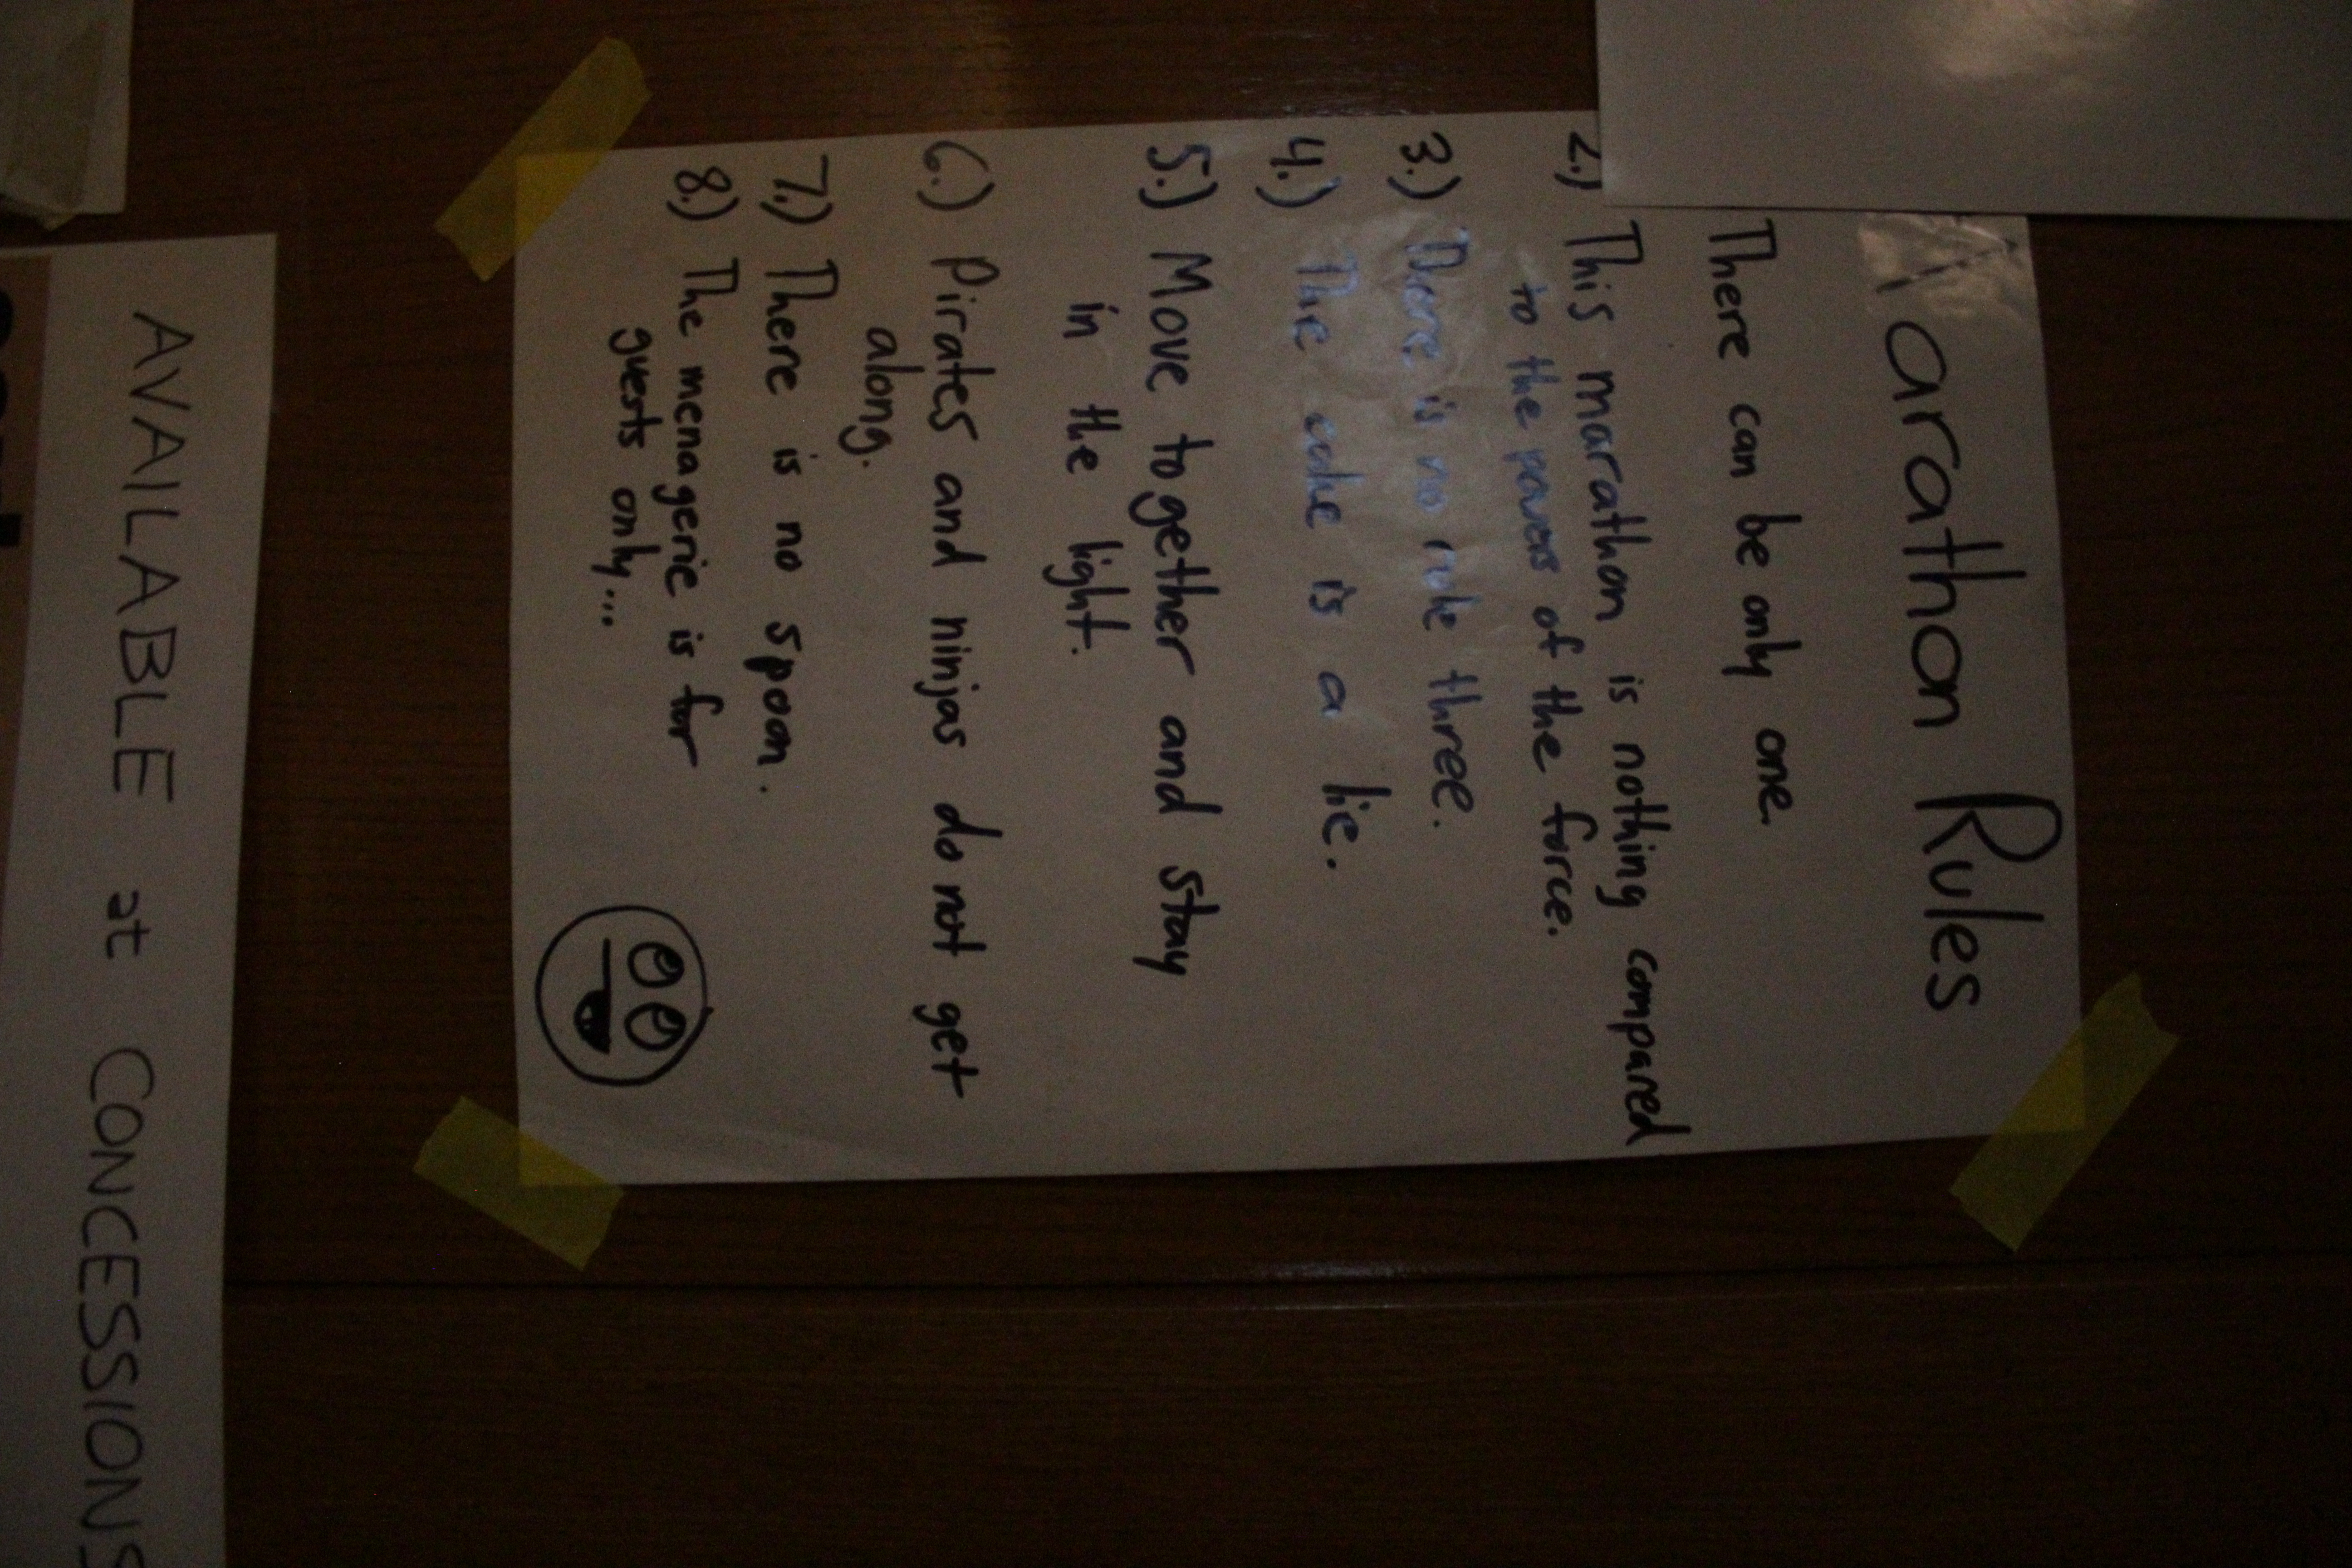 Marathon Rules
There can be only one.
2.) This marathon is nothing compared
to the powers of the force.
3.) There is no rule three.
4.) The cake is a lie.
5.) Move together and stay
in the light.
6.) Pirates and ninjas do not get
along.
7.) There is no spoon.
8.) The menagerie is for
guests only...
AVAILABLE at CONCESSIONS